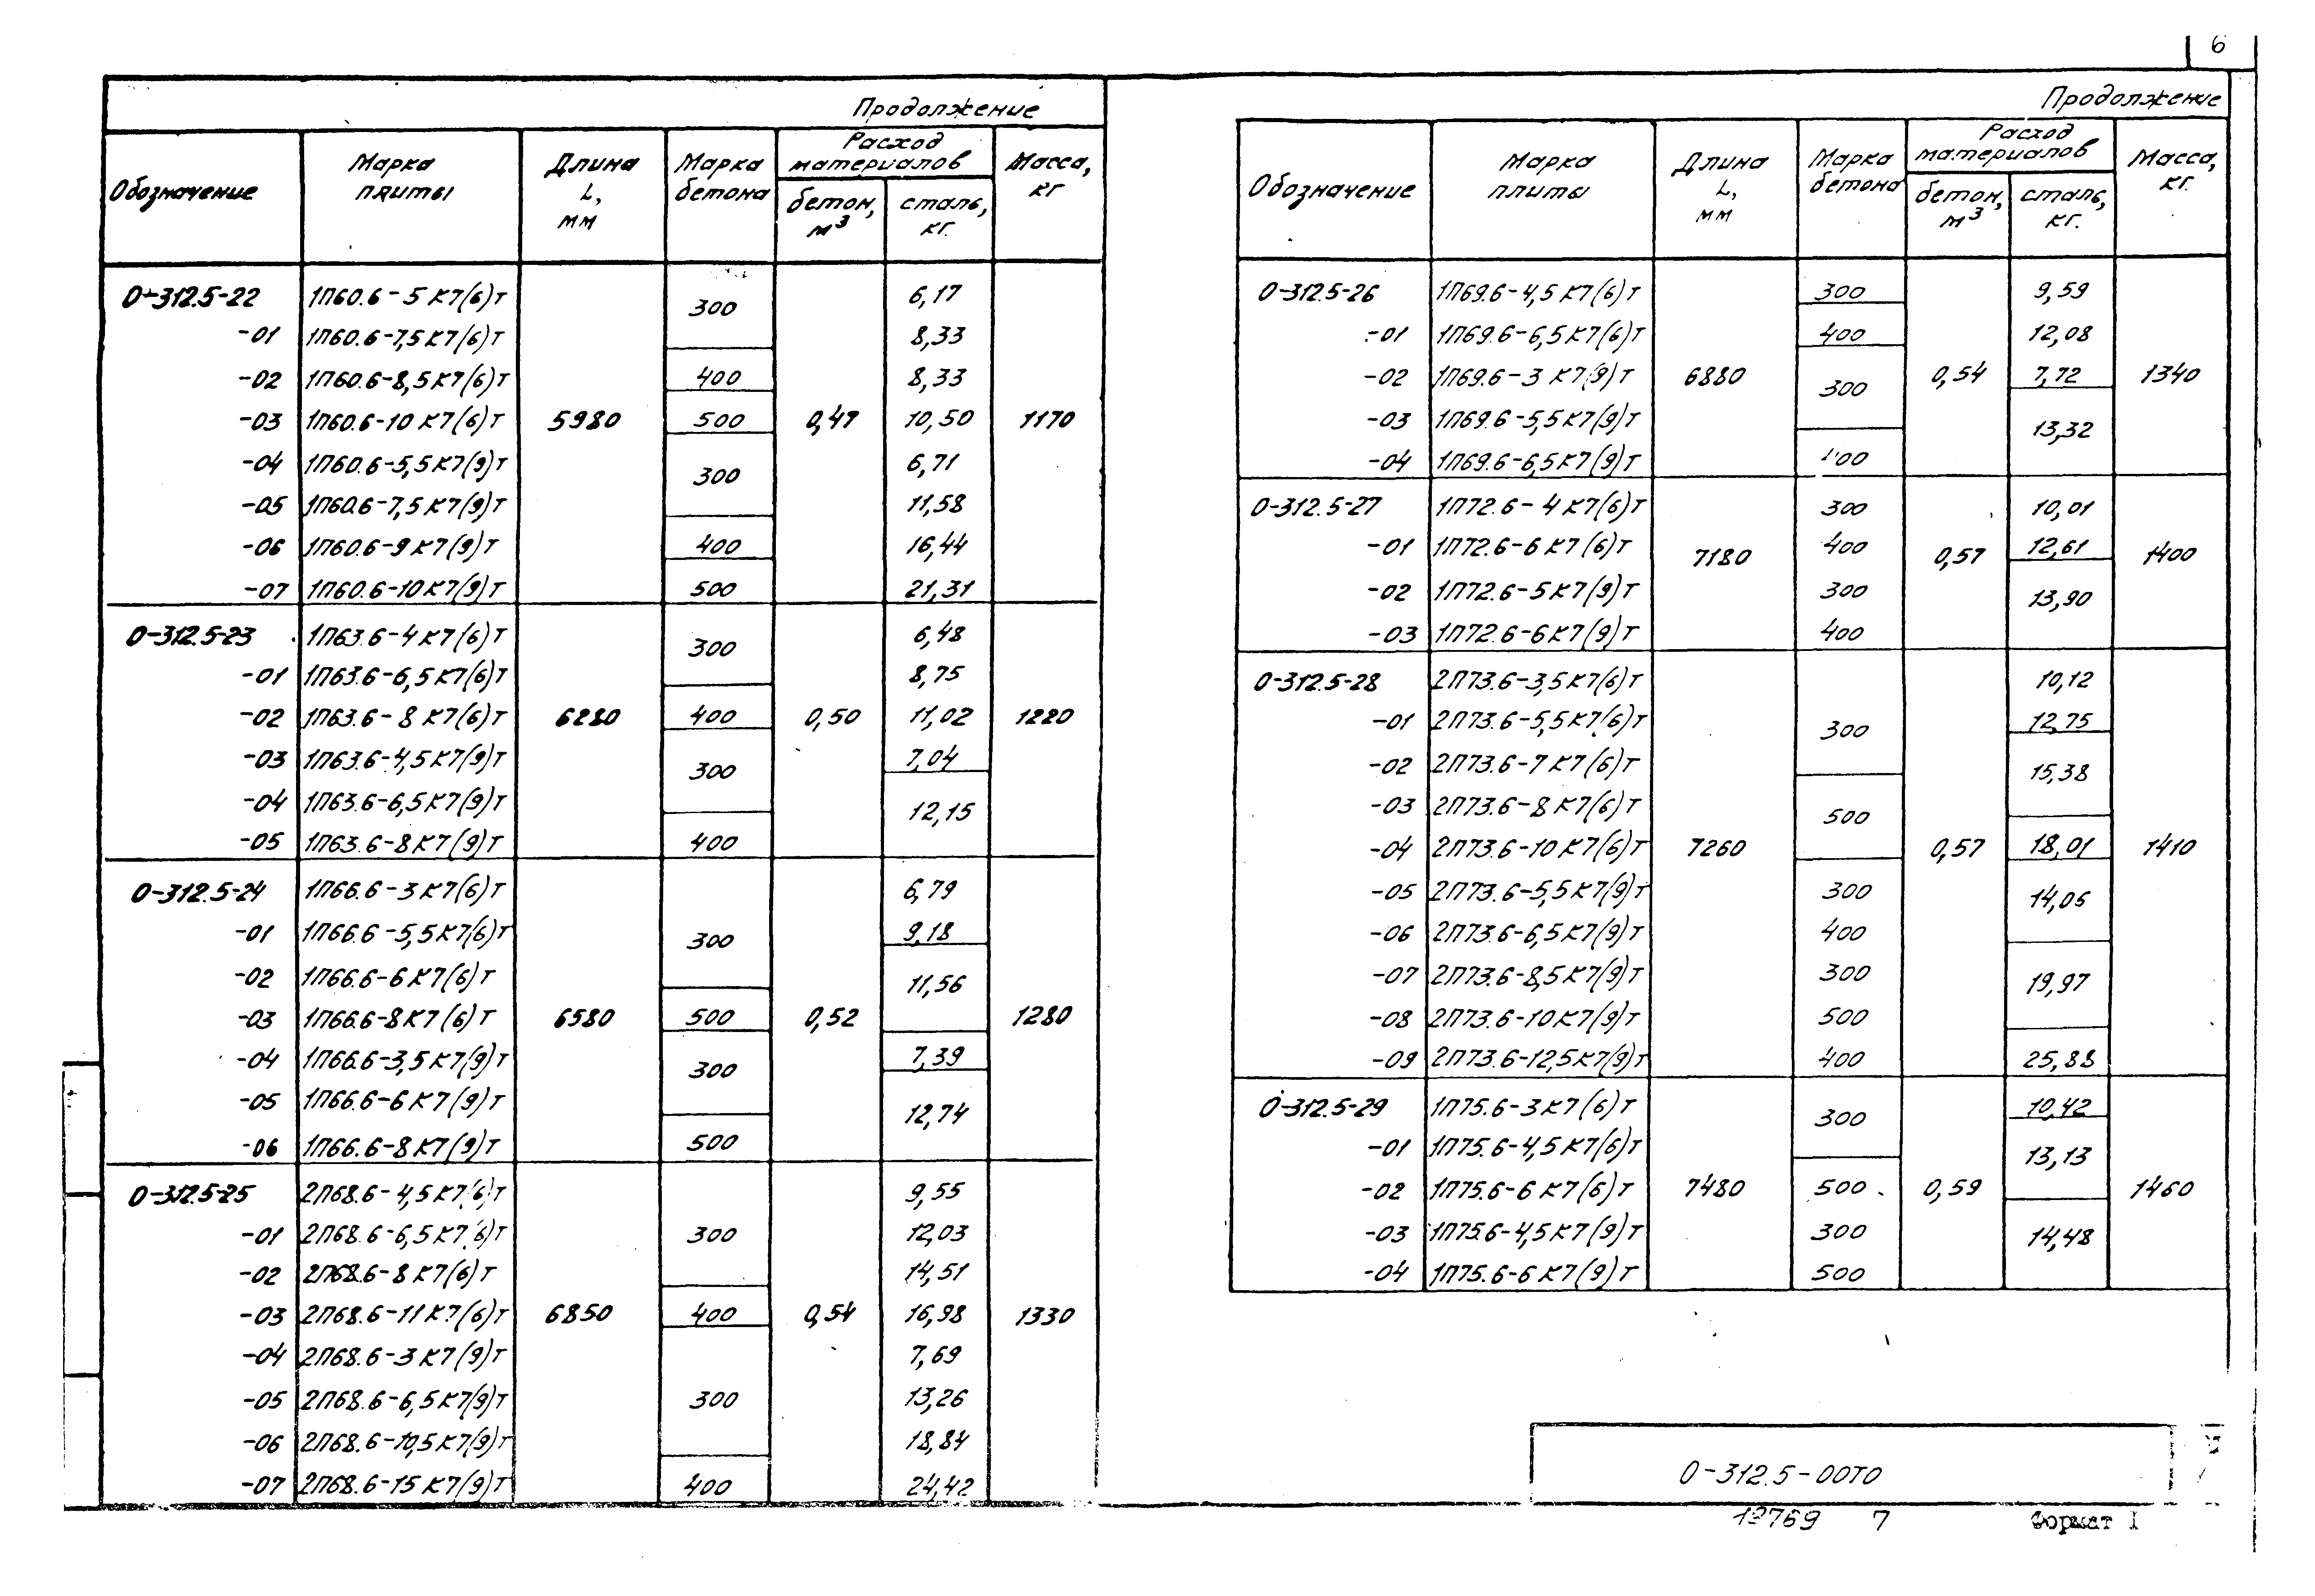 6
Продолжение
Обозначение Марка плиты Длина L, мм Марка бетона Расход материалов бетон, м³ сталь, кг. Масса, кг
0-312.5-22 1П60.6-5К7(6)Т 300 6,17
-01 1П60.6-7,5К7(6)Т 8,33
-02 1П60.6-8,5К7(6)Т 400 8,33
-03 1П60.6-10К7(6)Т 5980 500 0,47 10,50 1170
-04 1П60.6-5,5К7(9)Т 300 6,71
-05 1П60.6-7,5К7(9)Т 11,58
-06 1П60.6-9К7(9)Т 400 16,44
-07 1П60.6-10К7(9)Т 500 21,31
0-312.5-23 1П63.6-4К7(6)Т 300 6,48
-01 1П63.6-6,5К7(6)Т 8,75
-02 1П63.6-8К7(6)Т 6280 400 0,50 11,02 1220
-03 1П63.6-4,5К7(9)Т 300 7,04
-04 1П63.6-6,5К7(9)Т 12,15
-05 1П63.6-8К7(9)Т 400
0-312.5-24 1П66.6-3К7(6)Т 6,79
-01 1П66.6-5,5К7(6)Т 300 9,18
-02 1П66.6-6К7(6)Т 11,56
-03 1П66.6-8К7(6)Т 6580 500 0,52 1280
-04 1П66.6-3,5К7(9)Т 300 7,39
-05 1П66.6-6К7(9)Т 12,74
-06 1П66.6-8К7(9)Т 500
0-312.5-25 2П68.6-4,5К7(6)Т 9,55
-01 2П68.6-6,5К7(6)Т 300 12,03
-02 2П68.6-8К7(6)Т 14,51
-03 2П68.6-11К7(6)Т 6850 400 0,54 16,98 1330
-04 2П68.6-3К7(9)Т 7,69
-05 2П68.6-6,5К7(9)Т 300 13,26
-06 2П68.6-10,5К7(9)Т 18,84
-07 2П68.6-15К7(9)Т 400 24,42
Продолжение
Обозначение Марка плиты Длина L, мм Марка бетона Расход материалов бетон, м³ сталь, кг. Масса, кг.
0-312.5-26 1П69.6-4,5К7(6)Т 300 9,59
-01 1П69.6-6,5К7(6)Т 400 12,08
-02 1П69.6-3К7(9)Т 6880 300 0,54 7,72 1340
-03 1П69.6-5,5К7(9)Т 13,32
-04 1П69.6-6,5К7(9)Т
0-312.5-27 1П72.6-4К7(6)Т 300 10,01
-01 1П72.6-6К7(6)Т 7180 400 0,57 12,61 1400
-02 1П72.6-5К7(9)Т 300 13,90
-03 1П72.6-6К7(9)Т 400
0-312.5-28 2П73.6-3,5К7(6)Т 10,12
-01 2П73.6-5,5К7(6)Т 300 12,75
-02 2П73.6-7К7(6)Т 15,38
-03 2П73.6-8К7(6)Т 500
-04 2П73.6-10К7(6)Т 7260 0,57 18,01 1410
-05 2П73.6-5,5К7(9)Т 300 14,05
-06 2П73.6-6,5К7(9)Т 400
-07 2П73.6-8,5К7(9)Т 300 19,97
-08 2П73.6-10К7(9)Т 500
-09 2П73.6-12,5К7(9)Т 400 25,88
0-312.5-29 1П75.6-3К7(6)Т 300 10,42
-01 1П75.6-4,5К7(6)Т 13,13
-02 1П75.6-6К7(6)Т 7480 500 0,59 1460
-03 1П75.6-4,5К7(9)Т 300 14,48
-04 1П75.6-6К7(9)Т 500
0-312.5-00ТО
13769 7 Формат 1